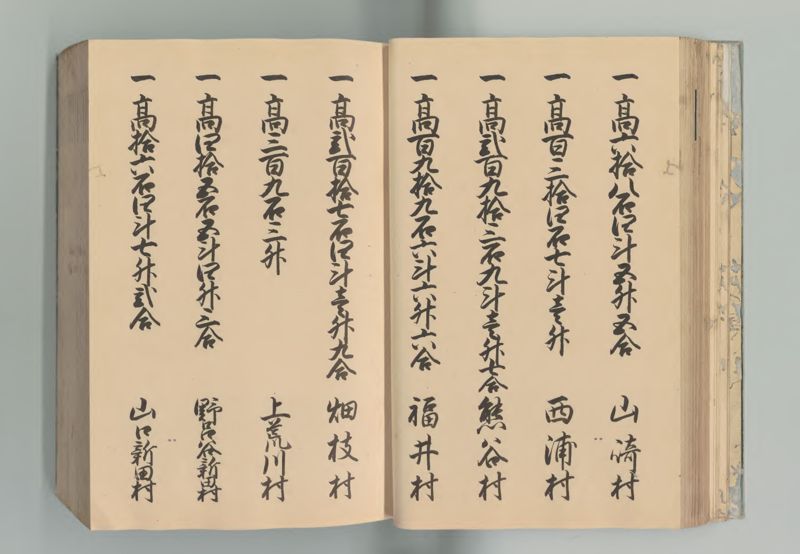 一高六拾八石四斗五升五合 山崎村
一高百三拾四石七斗壱升 西浦村
一高弐百九拾三石九斗壱升七合 熊谷村
一高百九拾九石六斗六升六合 福井村
一高弐百拾七石四斗壱升九合 畑枝村
一高三百九石三升 上荒川村
一高四拾五石五斗四升三合 野呂谷新田村
一高拾六石四斗七升弐合 山口新田村